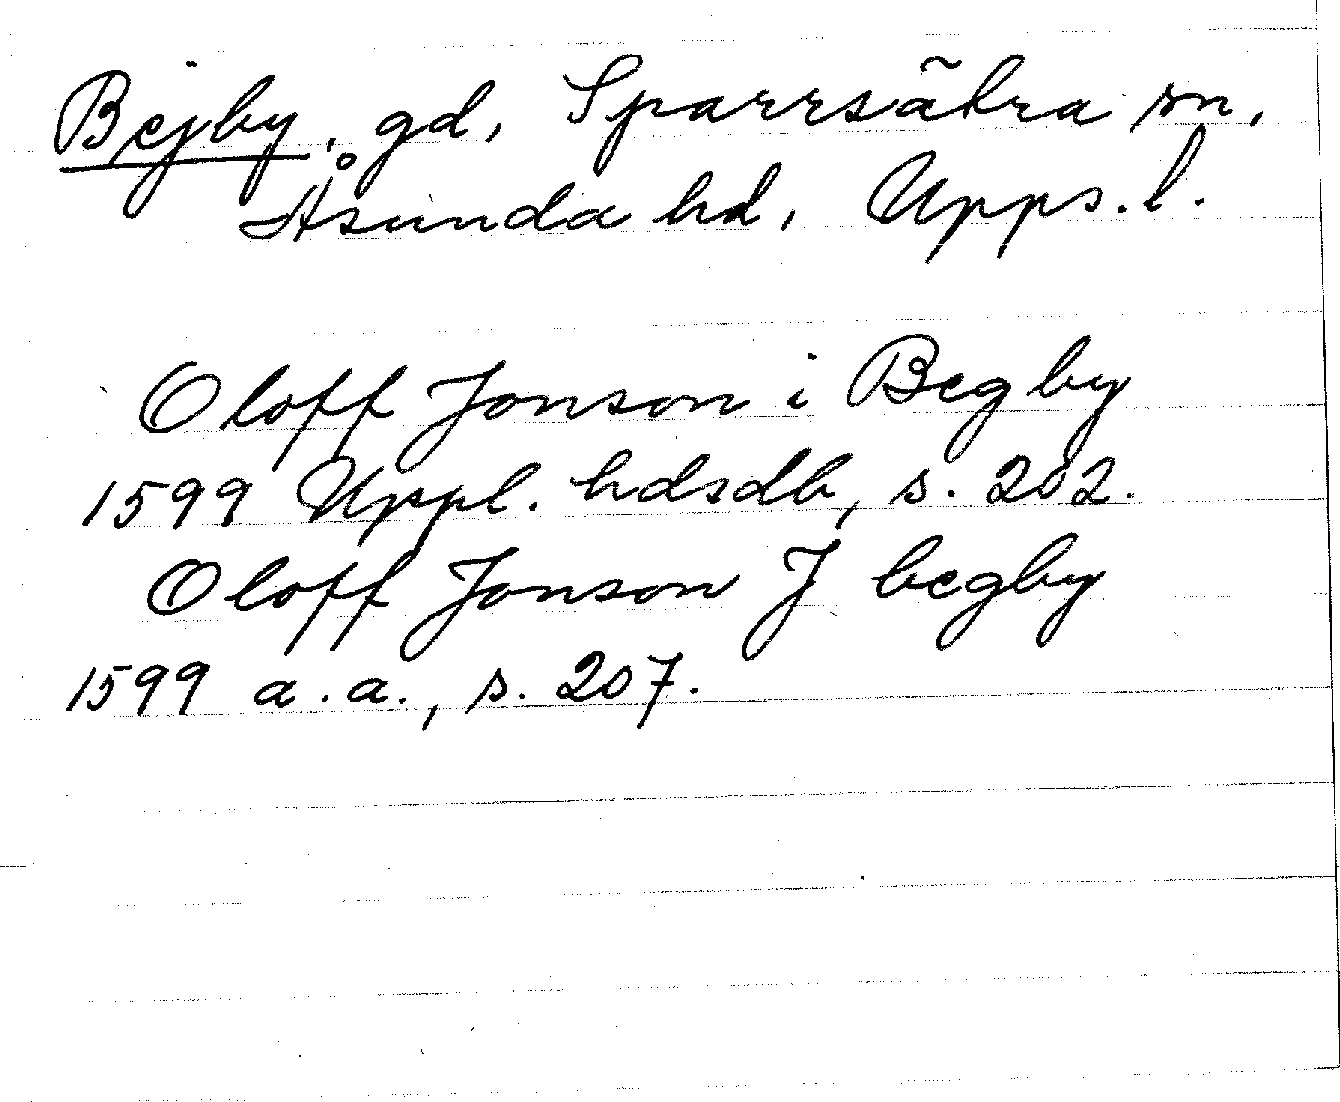 Bejby, gd, Sparrsätra sn,
Åsunda hd, Upps.l.
Oloff Jonson i Begby
1599 Uppl. hdsdb, s. 202.
Oloff Jonson J begby
1599 a.a., s. 207.